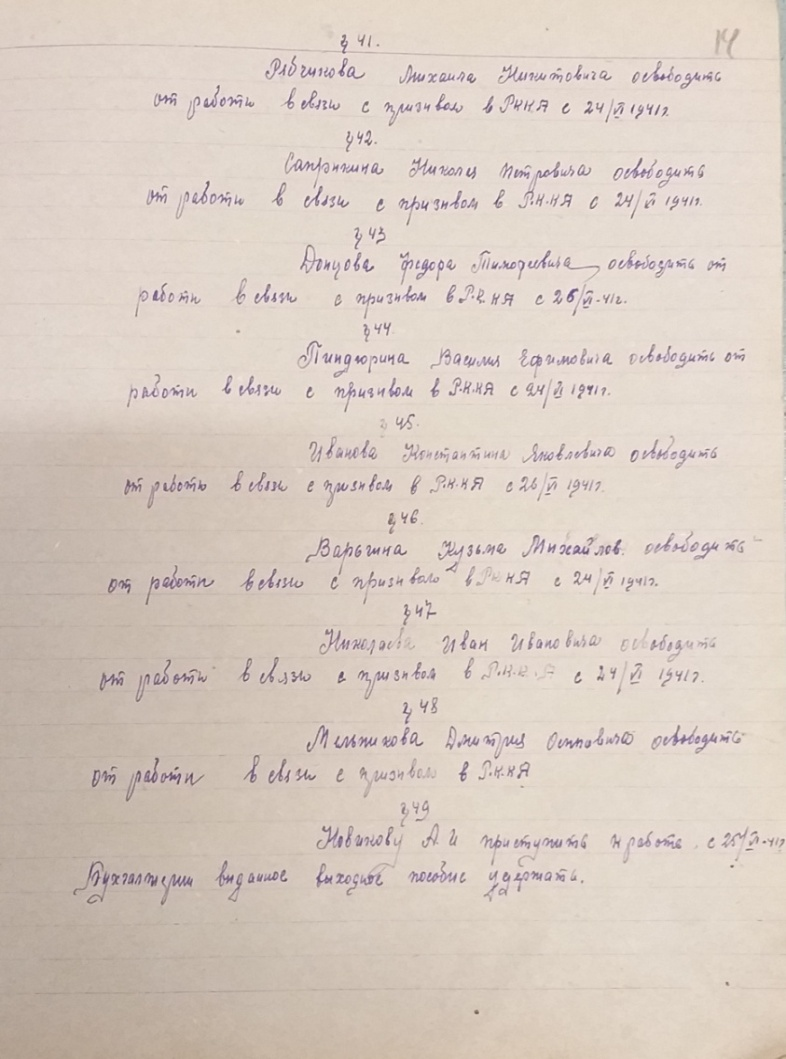 14
§ 41.
Рябчикова Михаила Никитовича освободить
от работы в связи с призывом в РККА с 24/VI 1941г.
§ 42.
Сапрыкина Николая Петровича освободить
от работы в связи с призывом в Р.К.КА с 24/VI 1941г.
§ 43
Донцова Федора Тимофеевича освободить от
работы в связи с призывом в Р.К.КА с 26/VI-41г.
§ 44.
Пиндюрина Василия Ефимовича освободить от
работы в связи с призывом в Р.К.КА с 24/VI 1941г.
§ 45.
Иванова Константина Яковлевича освободить
от работы в связи с призывом в Р.К.КА с 26/VI 1941г.
§ 46.
Варыгина Кузьма Михайлов. освободить
от работы в связи с призывом в РККА с 24/VI 1941г.
§ 47
Николаева Иван Ивановича освободить
от работы в связи с призывом в Р.К.К.А с 24/VI 1941г.
§ 48
Мельникова Дмитрия Осиповича освободить
от работы в связи с призывом в Р.К.КА
§ 49
Новикову А И приступить к работе с 25/VI-41г
Бухгалтерии выданное выходное пособие удержать.